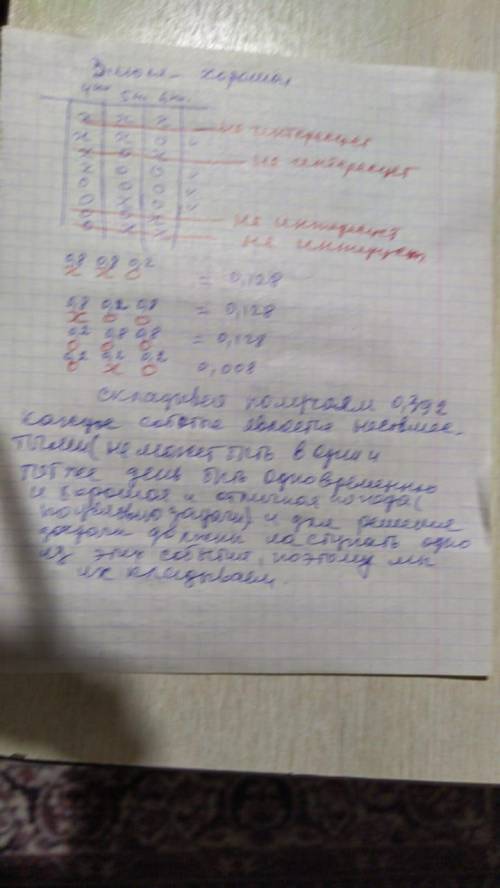 3 июля - хорошая
4 июл 5 июл 6 июл
х х х не интересует
х х о v
х о х не интересует
х о о v
о о о v
о х о v
о о х не интересует
о х х не интересует
0,8 0,8 0,2
х х о = 0,128
0,8 0,2 0,8
х о о = 0,128
0,2 0,8 0,8
о о о = 0,128
0,2 0,2 0,2
о х о 0,008
складывая получаем 0,392
каждые события являются несовмес-
тными (не может быть в один и
тот же день быть одновременно
и хорошая и отличная погода (
по условию задачи) и для решения
задачи должны наступать одно
из этих событий, поэтому мы
их складываем.